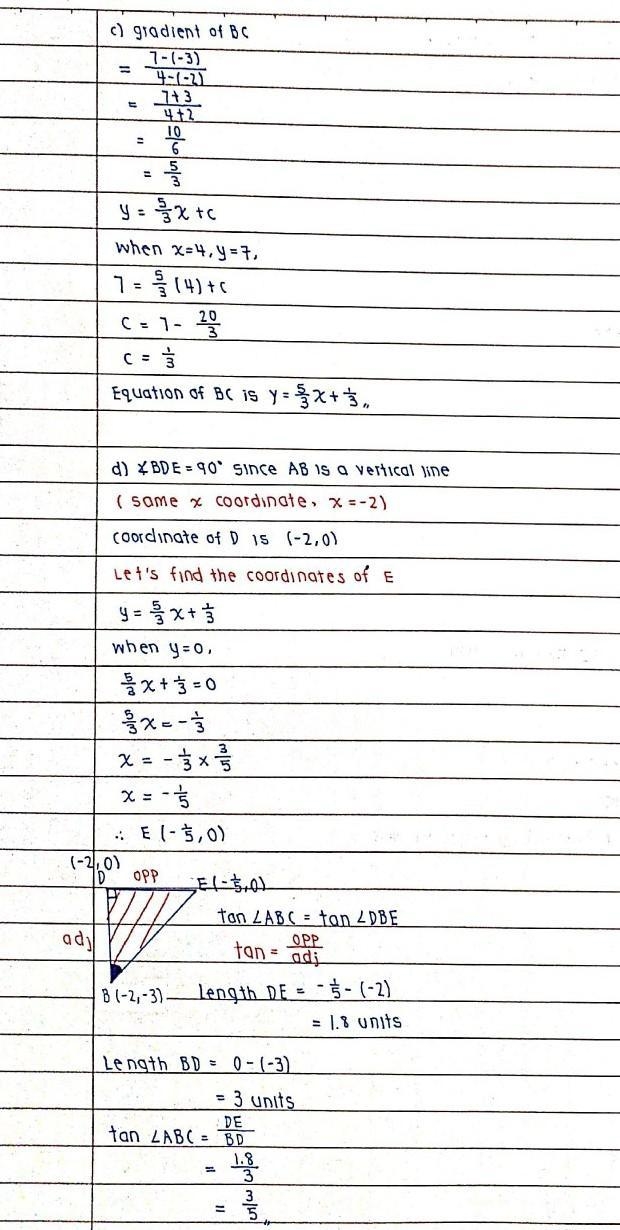 c) gradient of BC
= 7-(-3)/4-(-2)
= 7+3/4+2
= 10/6
= 5/3
y = 5/3 x + c
when x=4, y=7,
7 = 5/3 (4) + c
c = 7 - 20/3
c = 1/3
Equation of BC is y = 5/3 x + 1/3 „
d) ∡BDE = 90° since AB is a vertical line
( same x coordinate, x = -2)
coordinate of D is (-2,0)
Let's find the coordinates of E
y = 5/3 x + 1/3
when y=0,
5/3 x + 1/3 = 0
5/3 x = - 1/3
x = - 1/3 × 3/5
x = - 1/5
∴ E (- 1/5, 0)
(-2,0)
D opp E (- 1/5, 0)
tan ∠ABC = tan ∠DBE
adj tan = opp/adj
B (-2,-3) Length DE = - 1/5 - (-2)
= 1.8 units
Length BD = 0 - (-3)
= 3 units
tan ∠ABC = DE/BD
= 1.8/3
= 3/5 „